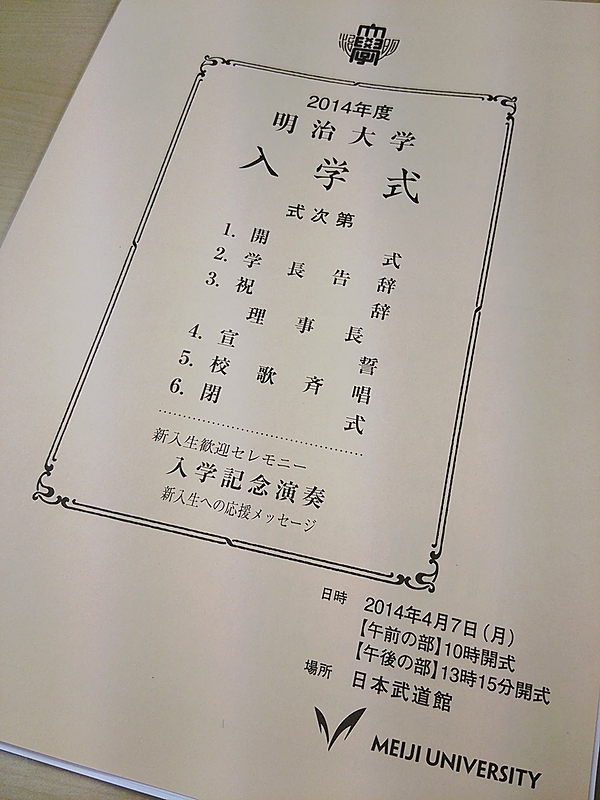 2014年度
明治大学
入学式
式次第
1. 開式
2. 学長告辞
3. 祝辞
理事長
4. 宣誓
5. 校歌斉唱
6. 閉式
新入生歓迎セレモニー
入学記念演奏
新入生への応援メッセージ
日時 2014年4月7日(月)
【午前の部】10時開式
【午後の部】13時15分開式
場所 日本武道館
MEIJI UNIVERSITY